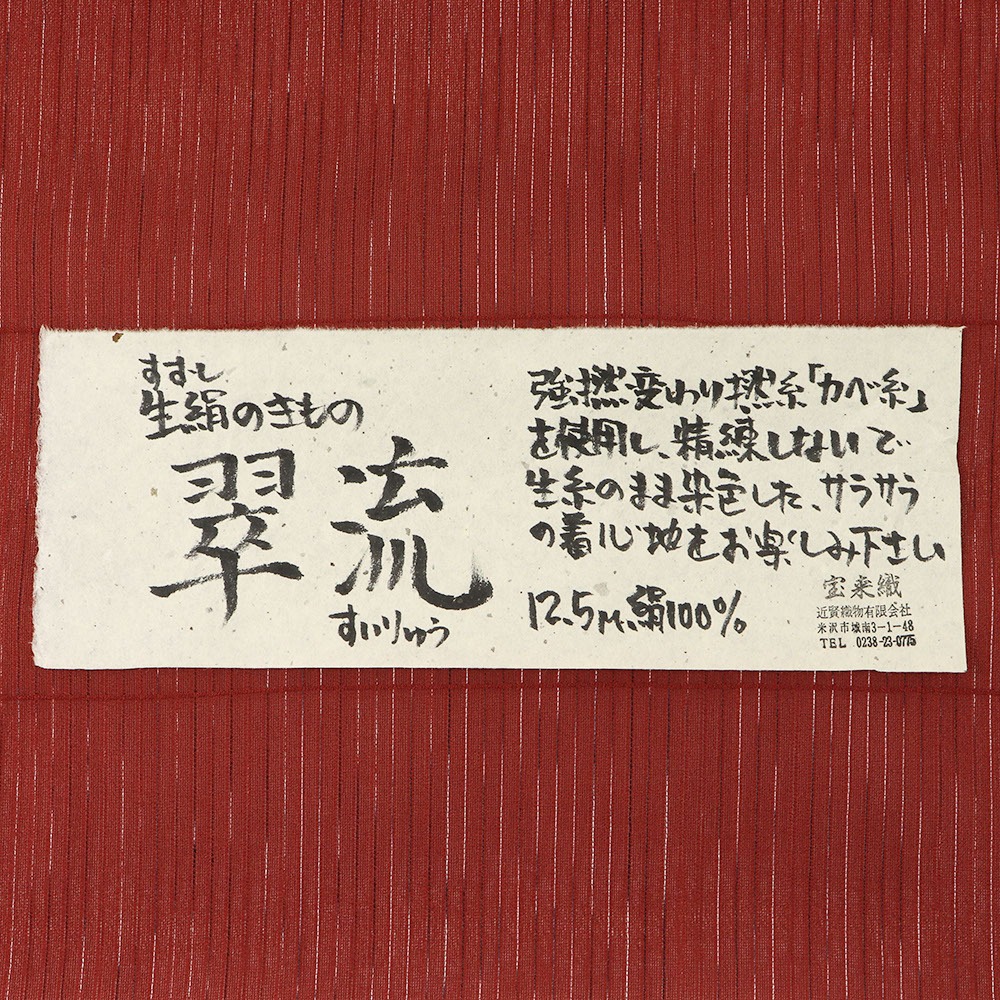 すずし
生絹のきもの
翠流
すいりゅう
強撚変わり撚糸「カベ糸」
を使用し、精練しないで
生糸のまま染色した、サラサラ
の着心地をお楽しみ下さい
12.5M、絹100%
宝来織
近賢織物有限会社
米沢市城南3-1-48
TEL 0238-23-0775